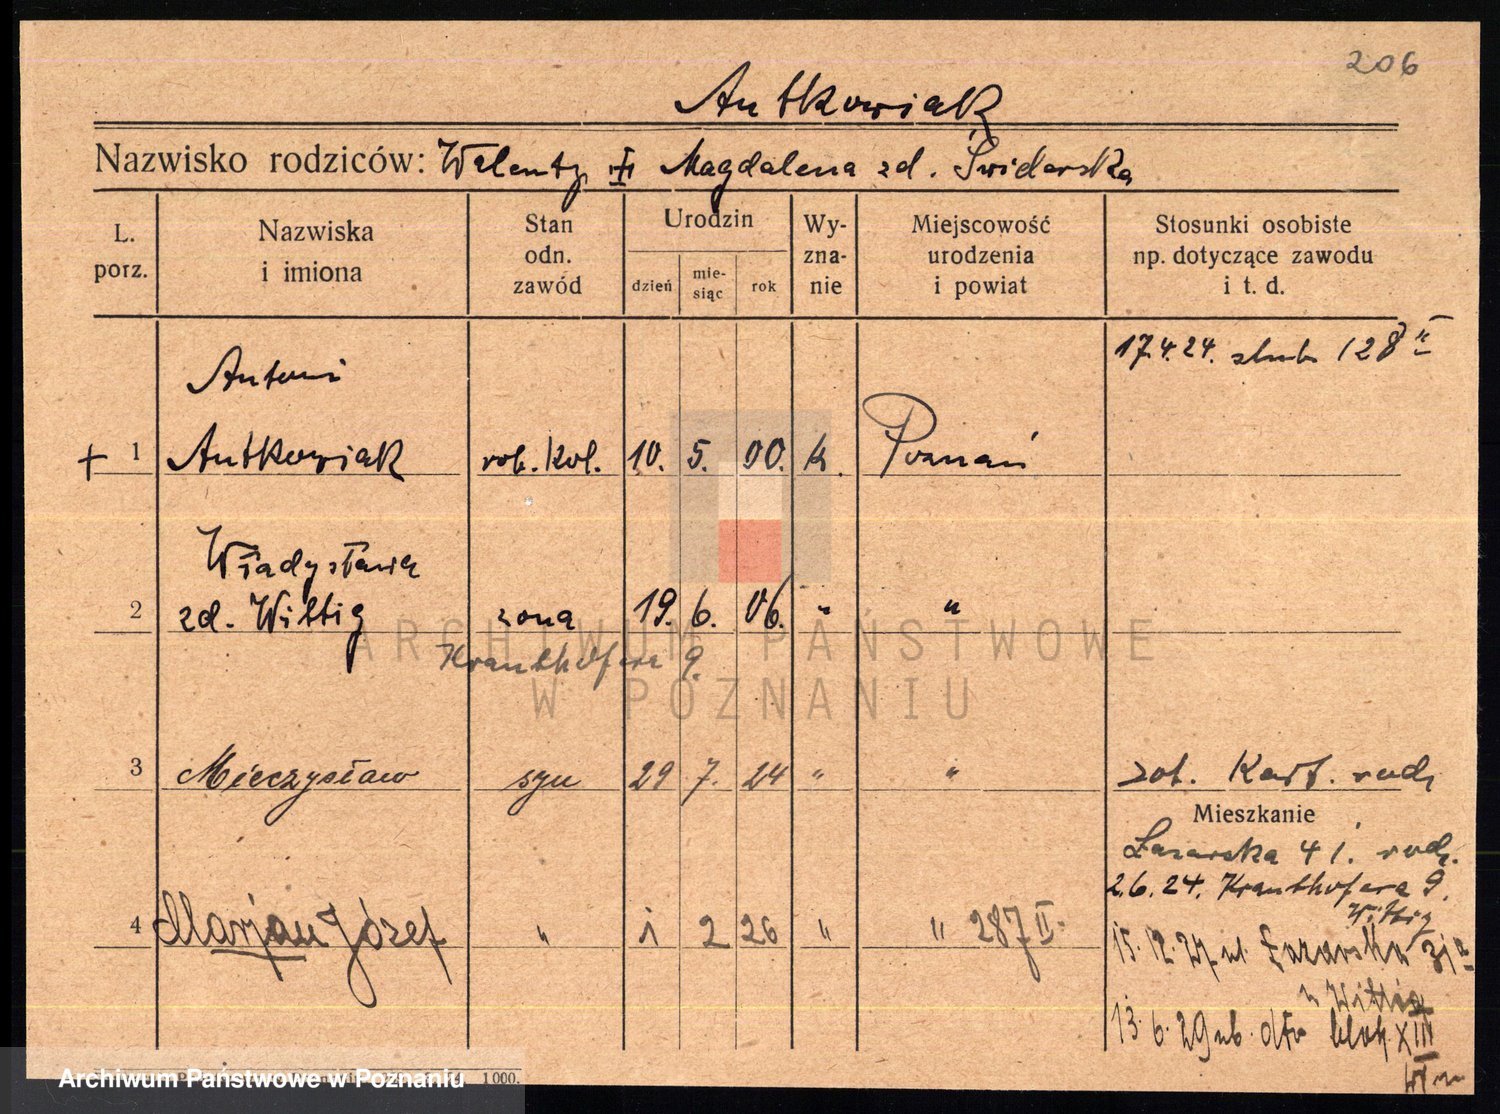 206
Antkowiak
Nazwisko rodziców: Walenty i Magdalena zd. Świderska
L. porz.
Nazwiska i imiona
Stan odn. zawód
Urodzin
dzień
mie-
siąc
rok
Wy-
zna-
nie
Miejscowość urodzenia i powiat
Stosunki osobiste np. dotyczące zawodu i t. d.
17.4.24. ślub 128 II
Antoni
+ 1 Antkowiak rob. kol. 10. 5. 00. k. Poznań
Władysława
2 zd. Wittig żona 19. 6. 06. " "
Krauthofera 9.
3 Mieczysław syn 29 7. 24 " " zob. Kart. rodz
Mieszkanie
Łazarska 4 I. rodz.
2.6.24. Krauthofera 9.
Wittig
4 Marjan Józef " 1 2 26 " " 287 II.
15.12.27 ul. Łazarska
u Wittig
13.6.29 blok XIII
ARCHIWUM PAŃSTWOWE
W POZNANIU
1000.
Archiwum Państwowe w Poznaniu